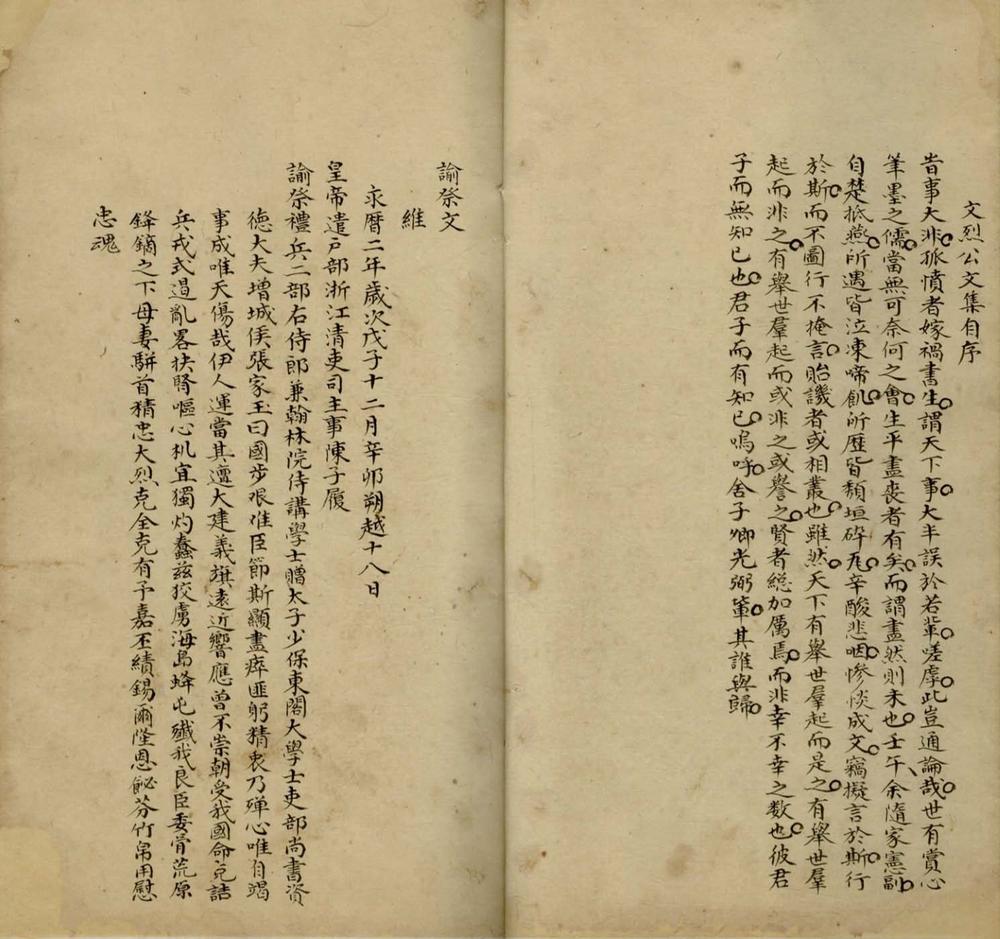 文烈公文集自序
昔事大非孤憤者嫁禍書生謂天下事大半誤於若輩嗟虖此豈通論哉世有賞心
筆墨之儒當無可奈何之會生平盡喪者有矣而謂盡然則未也壬午余隨家憲副
自楚抵燕所遇皆泣凍啼飢所歷皆頹垣碎瓦辛酸悲咽慘惔成文竊擬言於斯行
於斯而不圖行不掩言貽譏者或相叢也雖然天下有舉世羣起而是之有舉世羣
起而非之有舉世羣起而或非之或譽之賢者總加厲焉而非幸不幸之数也彼君
子而無知已也君子而有知已嗚呼舍子卿光弼軰其誰與歸
諭祭文
維
永曆二年歲次戊子十二月辛卯朔越十八日
皇帝遣戶部浙江清吏司主事陳子履
諭祭禮兵二部右侍郎兼翰林院侍講學士贈太子少保東閣大學士吏部尚書資
德大夫增城侯張家玉曰國步艰难臣節斯顯盡瘁匪躬精衷乃殫心唯自竭
事成唯天傷哉伊人運當其邅大建義旗遠近響應曾不崇朝受我國命克詰
兵戎式遏亂畧抉腎嘔心机宜獨灼蠢茲狡虜海島蜂屯殲我良臣委骨荒原
鋒鏑之下母妻駢首精忠大烈克全克有予嘉丕績錫爾隆恩飶芬竹帛用慰
忠魂